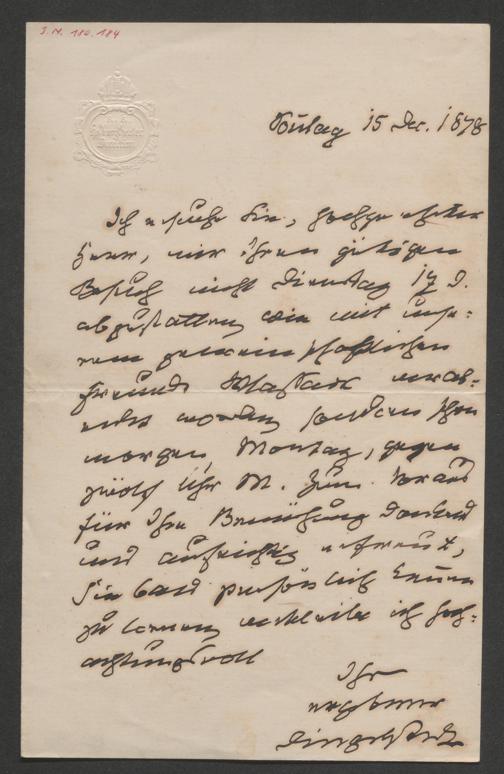 I.N. 180.184
Sontag 15 Dec. 1878
Ich ersuche Sie, hochgeehrter
Herr, mir Ihren gütigen
Besuch nicht Dienstag 17 d.
abzustatten, wie mit unse-
rem gemeinschaftlichen
Freunde verab-
redet worden, sondern schon
morgen, Montag, gegen
zwölf Uhr M. Zum Voraus
für Ihre Bemühung dankend
und aufrichtig erfreut,
Sie bald persönlich kennen
zu lernen, verbleibe ich hoch-
achtungsvoll
Ihr
ergebener
Dingelstedt